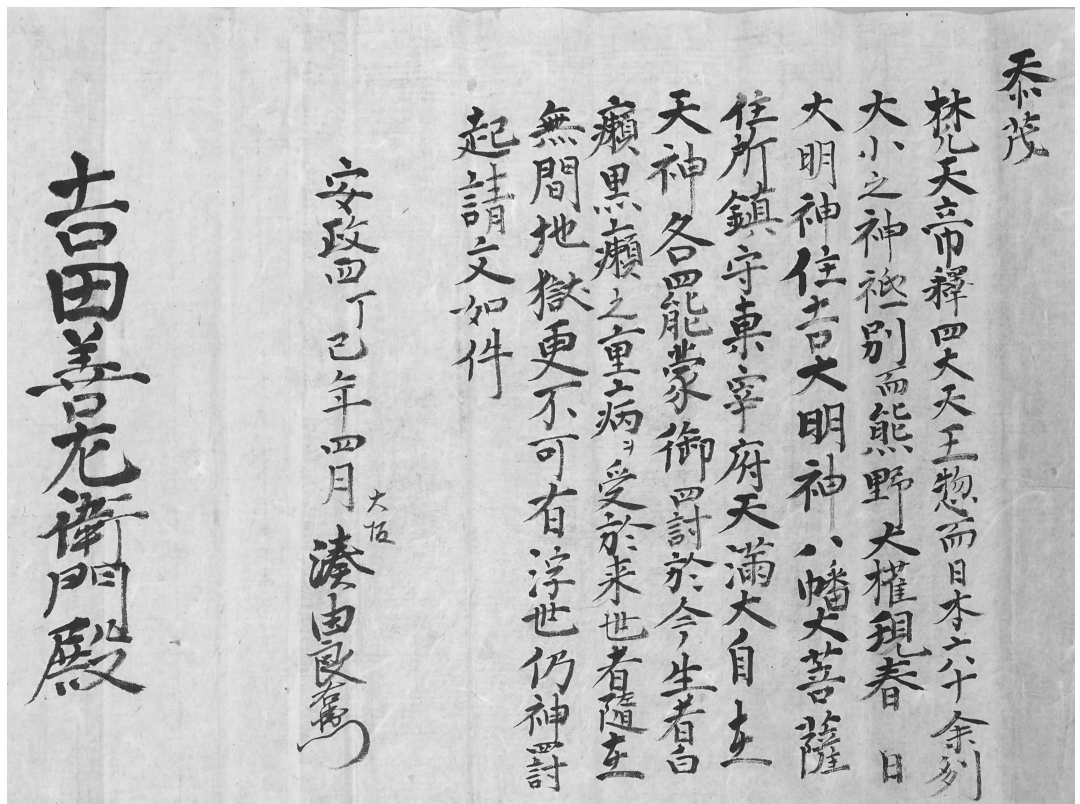 忝茂
梵天帝釋四大天王惣而日本六十余列
大小之神祇別而熊野大権現春日
大明神住吉大明神八幡大菩薩
住所鎮守東宰府天満大自在
天神各四能蒙御四討於今生者白
癩黒癩之重病ヲ受於来世者随在
無間地獄更不可有浮世仍神四討
起請文如件
安政四丁己年四月
大坂
湊由良右衛門
吉田善左衛門殿